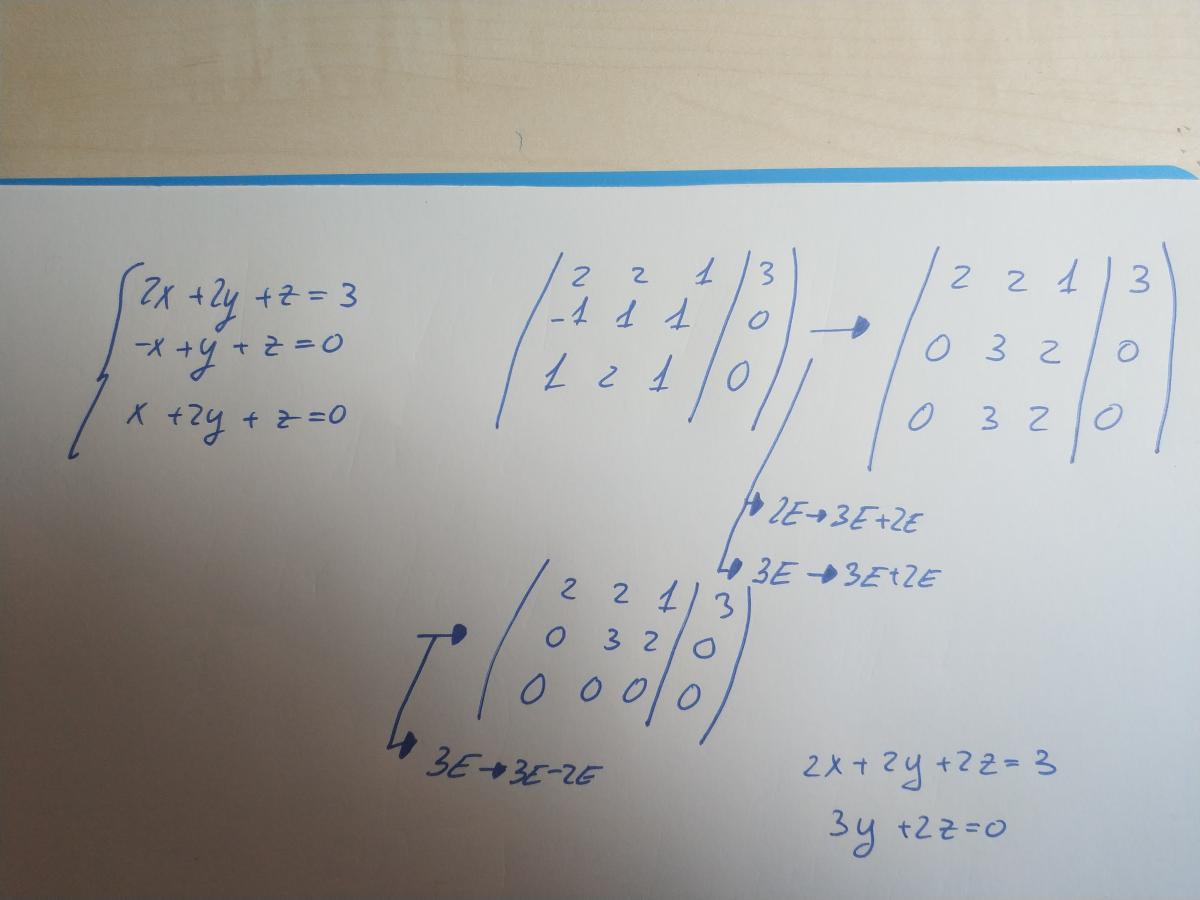 2x + 2y + z = 3
-x + y + z = 0
x + 2y + z = 0
2 2 1 | 3
-1 1 1 | 0
1 2 1 | 0
→
2 2 1 | 3
0 3 2 | 0
0 3 2 | 0
→ 2E → 3E + 2E
→ 3E → 3E + 2E
→
2 2 1 | 3
0 3 2 | 0
0 0 0 | 0
→ 3E → 3E - 2E
2x + 2y + 2z = 3
3y + 2z = 0